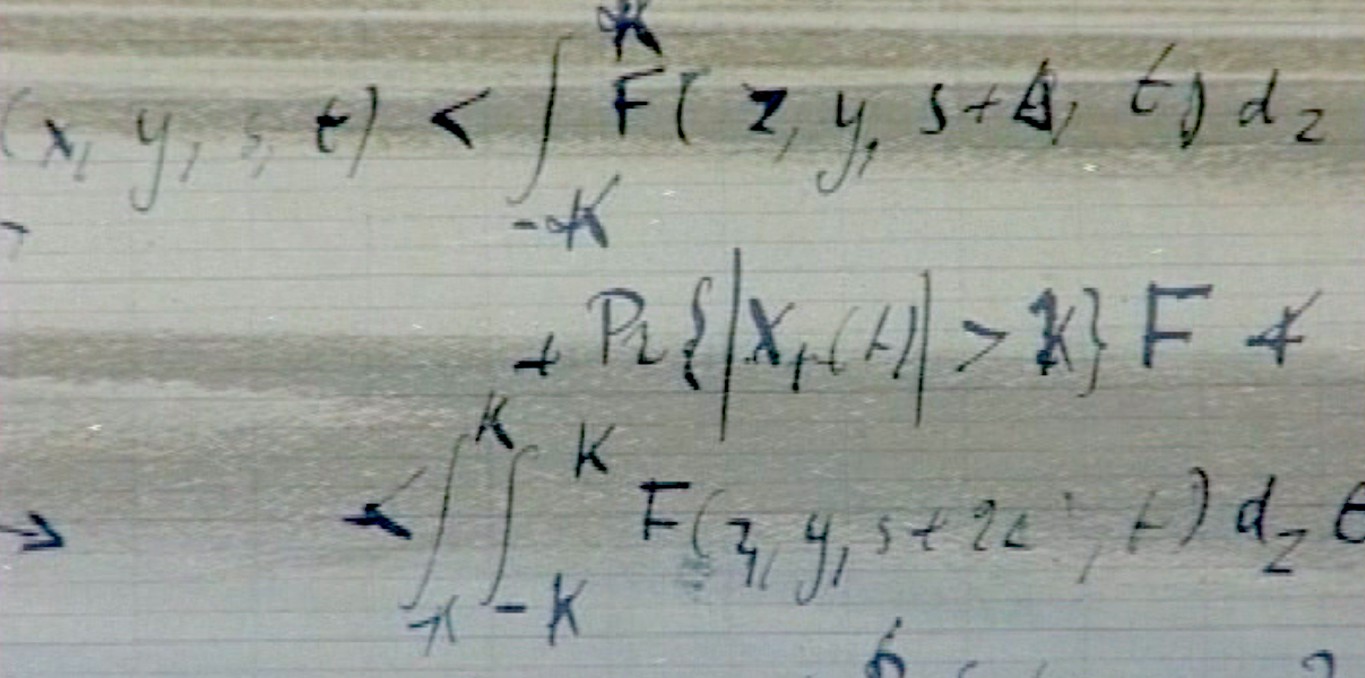 (x, y, s, t) < ∫_{-K}^{K} F(z, y, s+Δ, t) dz
+ Pr{|X_r(t)| > K} F <
→ < ∫∫_{-K}^{K} F(z, y, s+2Δ, t) dz